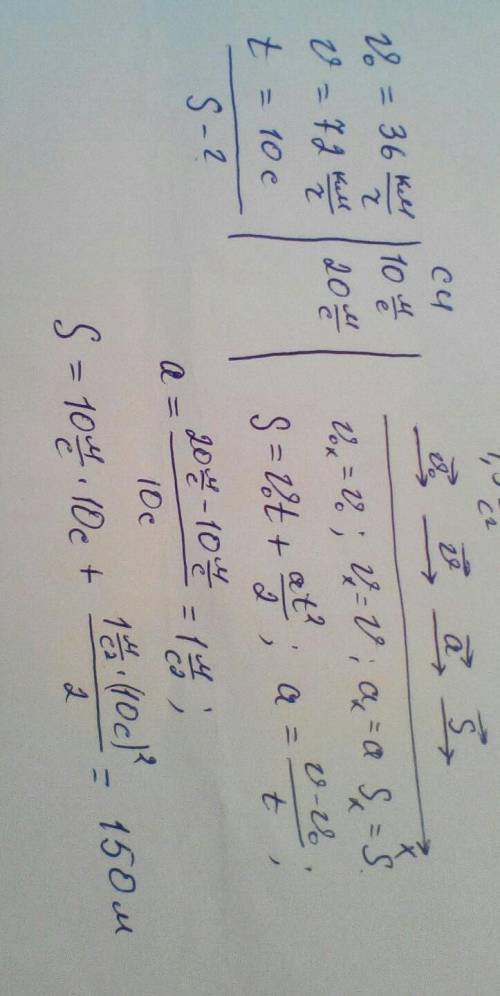 СИ
v₀ = 36 км/ч | 10 м/с
v = 72 км/ч | 20 м/с
t = 10 с
S - ?
v₀ v a S
x
v₀ₓ = v₀; vₓ = v; aₓ = a Sₓ = S
S = v₀t + at²/2; a = (v - v₀)/t;
a = (20 м/с - 10 м/с)/10 с = 1 м/с²;
S = 10 м/с · 10 с + (1 м/с² · (10 с)²)/2 = 150 м